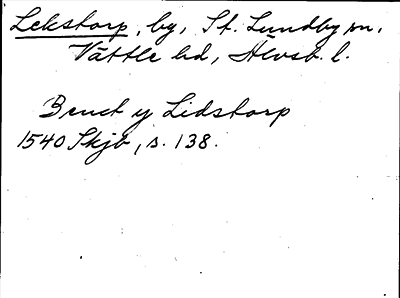 Lekstorp, by, St. Lundby sn.
Vättle hd, Älvsb. l.
Benct y Lidstorp
1540 Skjb, s. 138.